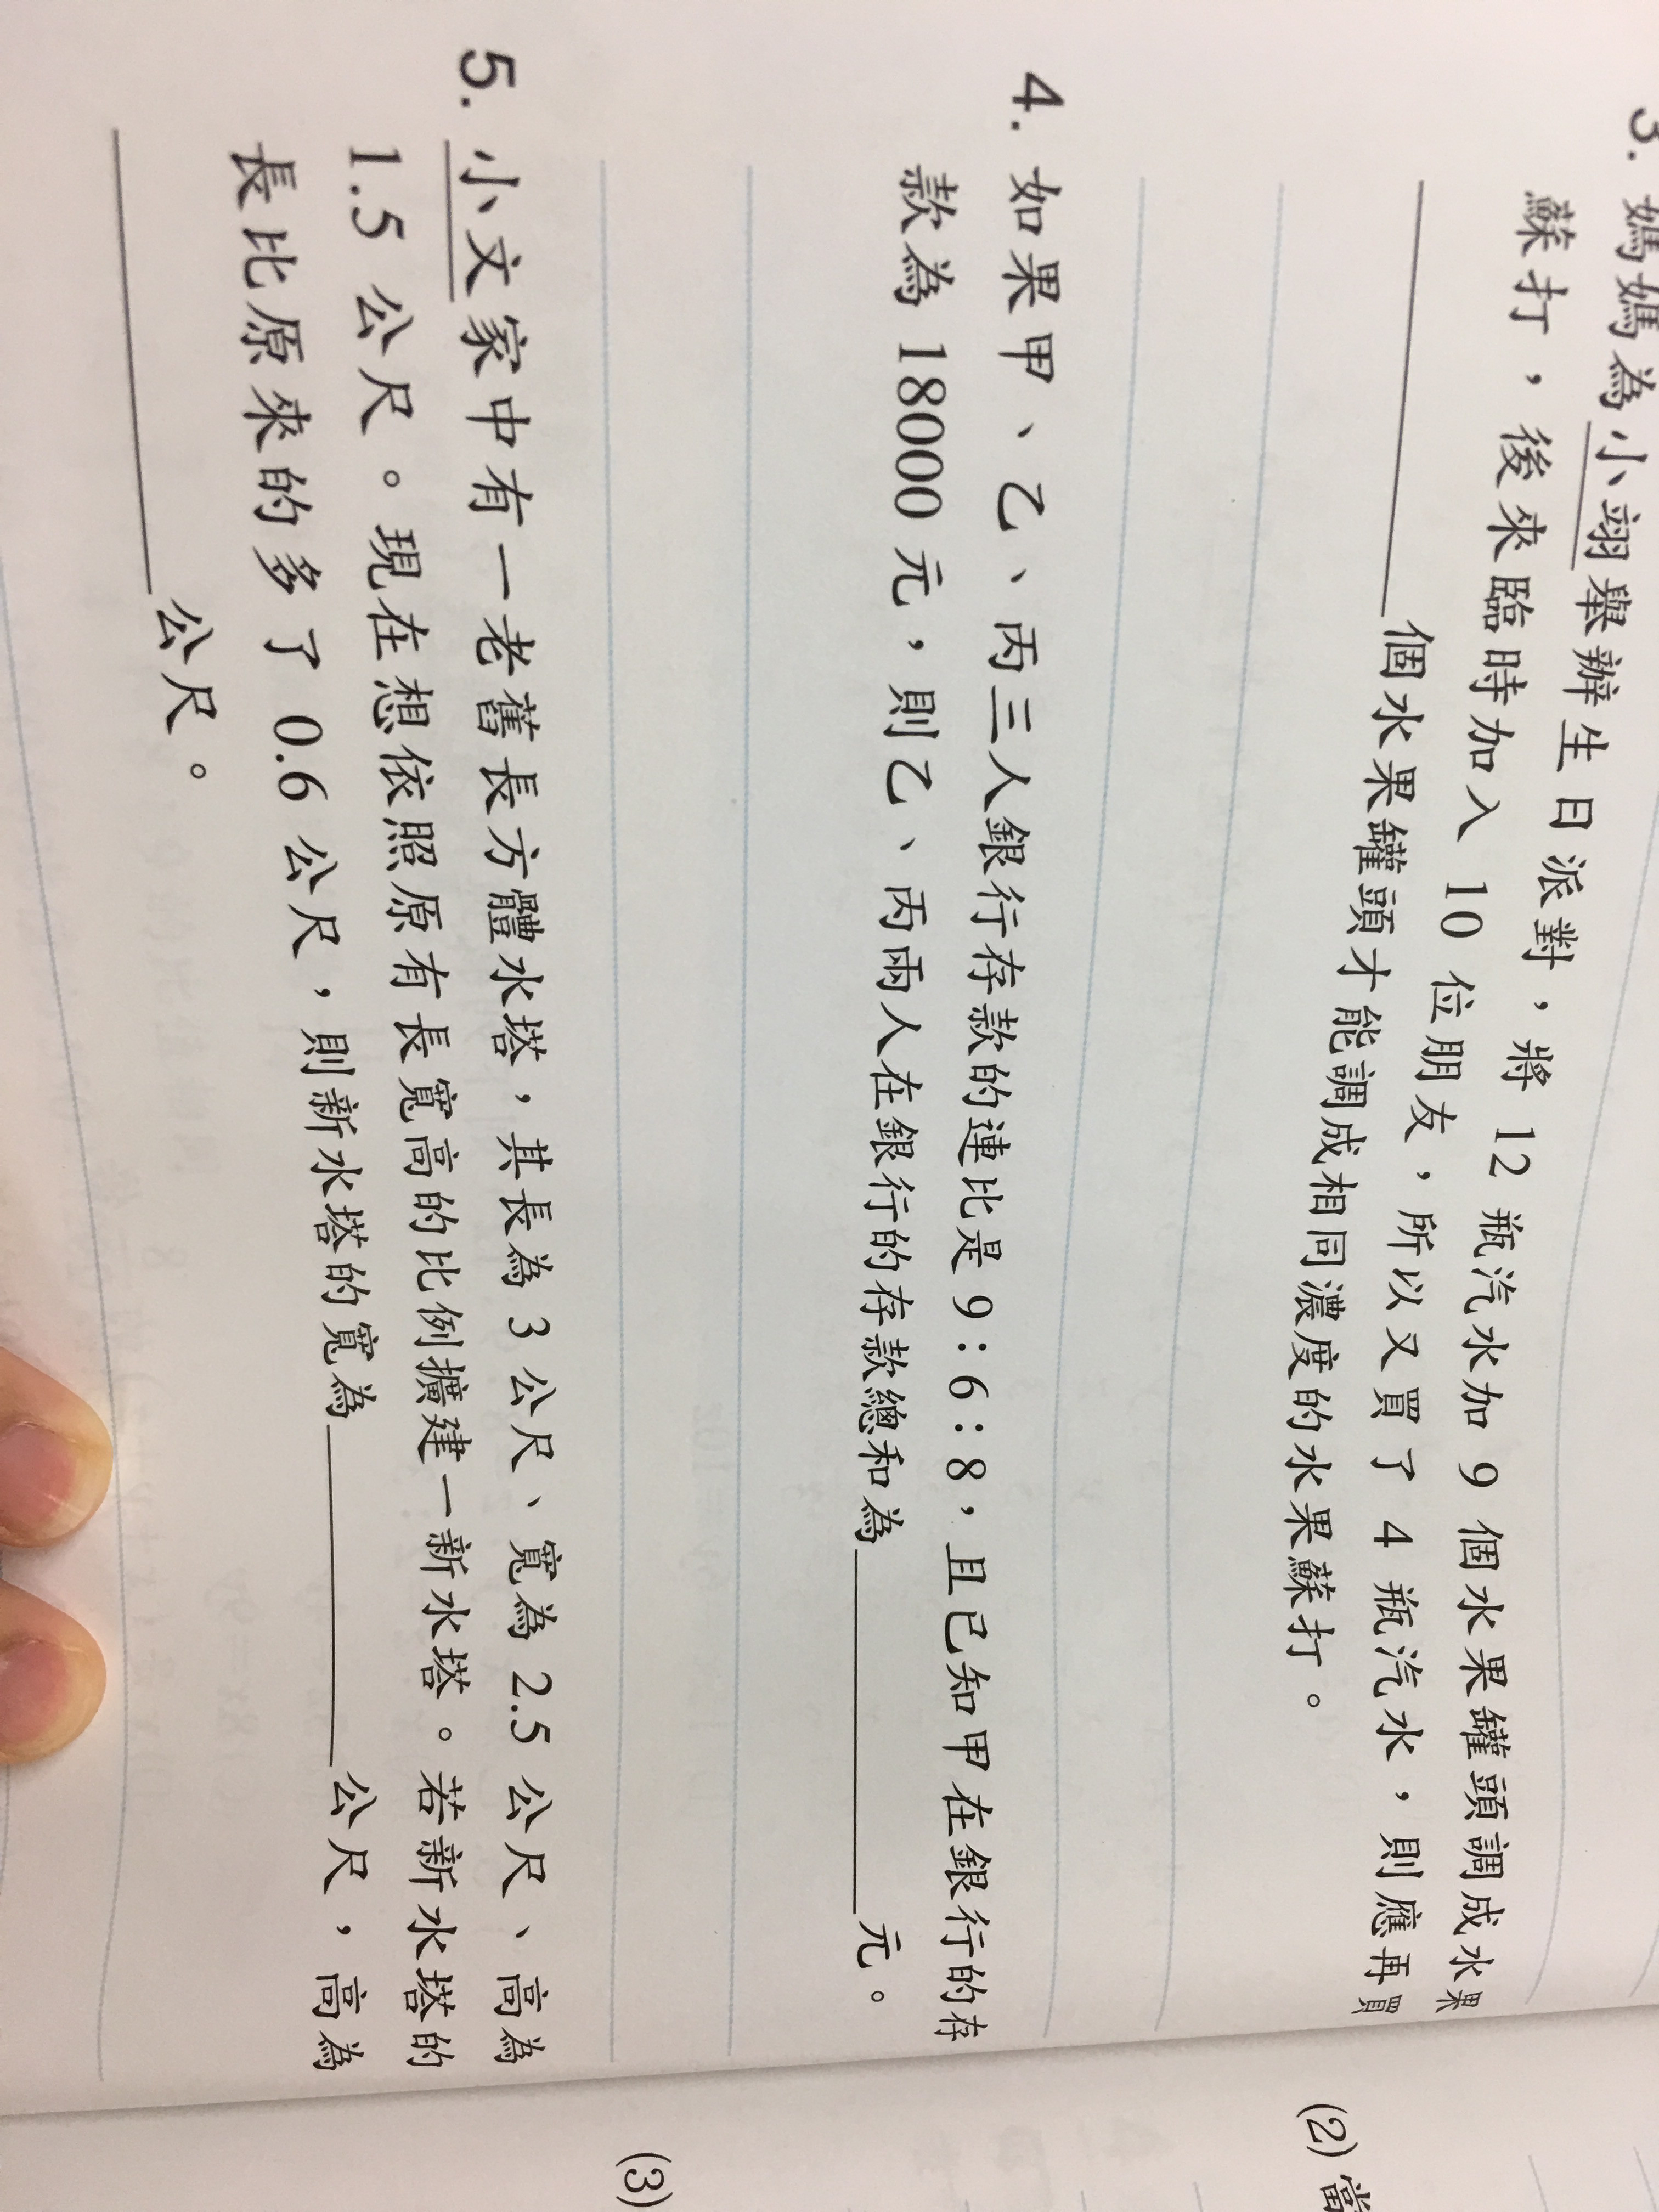 3. 媽媽為小翊舉辦生日派對，將 12 瓶汽水加 9 個水果罐頭調成水果
蘇打，後來臨時加入 10 位朋友，所以又買了 4 瓶汽水，則應再買
個水果罐頭才能調成相同濃度的水果蘇打。
4. 如果甲、乙、丙三人銀行存款的連比是 9：6：8，且已知甲在銀行的存
款為 18000 元，則乙、丙兩人在銀行的存款總和為＿＿＿＿元。
5. 小文家中有一老舊長方體水塔，其長為 3 公尺、寬為 2.5 公尺、高為
1.5 公尺。現在想依照原有長寬高的比例擴建一新水塔。若新水塔的
長比原來的多了 0.6 公尺，則新水塔的寬為＿＿＿＿公尺，高為
＿＿＿＿公尺。
(2) 當
(3)